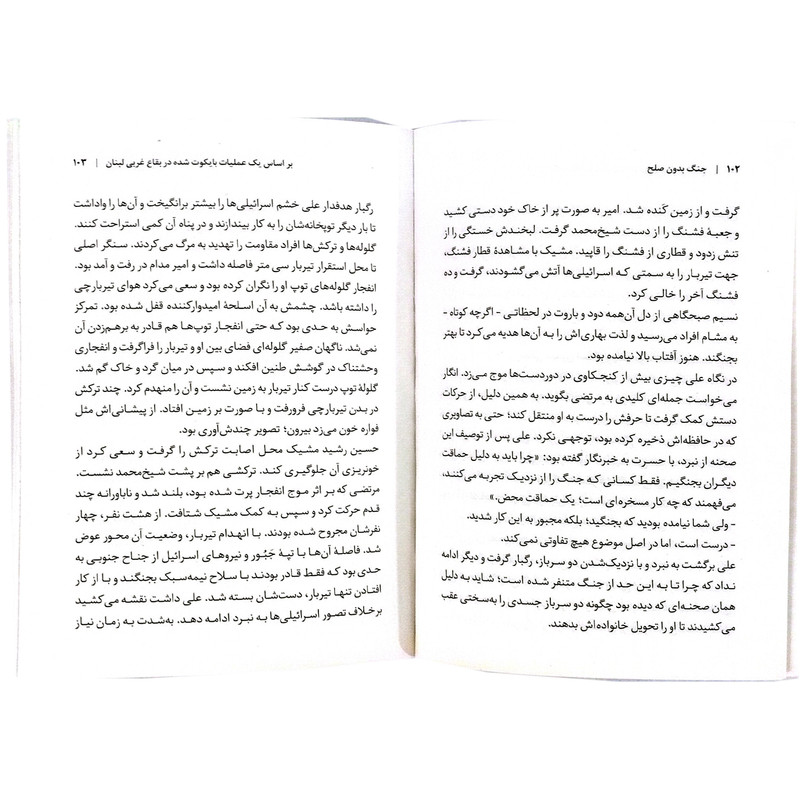 ۱۰۲ | جنگ بدون صلح
گرفت و از زمین کَنده شد. امیر به صورت پر از خاک خود دستی کشید
و جعبهٔ فشنگ را از دست شیخ‌محمد گرفت. لبخندش خستگی را از
تنش زدود و قطاری از فشنگ را قاپید. مشیک با مشاهدهٔ قطار فشنگ،
جهت تیربار را به سمتی که اسرائیلی‌ها آتش می‌گشودند، گرفت و ده
فشنگ آخر را خالی کرد.
نسیم صبحگاهی از دل آن‌همه دود و باروت در لحظاتی - اگرچه کوتاه -
به مشام افراد می‌رسید و لذت بهاری‌اش را به آن‌ها هدیه می‌کرد تا بهتر
بجنگند. هنوز آفتاب بالا نیامده بود.
در نگاه علی چیزی بیش از کنجکاوی در دوردست‌ها موج می‌زد. انگار
می‌خواست جمله‌ای کلیدی به مرتضی بگوید. به همین دلیل، از حرکات
دستش کمک گرفت تا حرفش را درست به او منتقل کند؛ حتی به تصاویری
که در حافظه‌اش ذخیره کرده بود، توجهی نکرد. علی پس از توصیف این
صحنه از نبرد، با حسرت به خبرنگار گفته بود: «چرا باید به دلیل حماقت
دیگران بجنگیم. فقط کسانی که جنگ را از نزدیک تجربه می‌کنند،
می‌فهمند که چه کار مسخره‌ای است؛ یک حماقت محض.»
- ولی شما نیامده بودید که بجنگید؛ بلکه مجبور به این کار شدید.
- درست است، اما در اصل موضوع هیچ تفاوتی نمی‌کند.
علی برگشت به نبرد و با نزدیک‌شدن دو سرباز، رگبار گرفت و دیگر ادامه
نداد که چرا تا به این حد از جنگ متنفر شده است؛ شاید به دلیل
همان صحنه‌ای که دیده بود چگونه دو سرباز جسدی را به‌سختی عقب
می‌کشیدند تا او را تحویل خانواده‌اش بدهند.
بر اساس یک عملیات بایکوت شده در بقاع غربی لبنان | ۱۰۳
رگبار هدفدار علی خشم اسرائیلی‌ها را بیشتر برانگیخت و آن‌ها را واداشت
تا بار دیگر توپخانه‌شان را به کار بیندازند و در پناه آن کمی استراحت کنند.
گلوله‌ها و ترکش‌ها افراد مقاومت را تهدید به مرگ می‌کردند. سنگر اصلی
تا محل استقرار تیربار سی متر فاصله داشت و امیر مدام در رفت و آمد بود.
انفجار گلوله‌های توپ او را نگران کرده بود و سعی می‌کرد هوای تیربارچی
را داشته باشد. چشمش به آن اسلحهٔ امیدوارکننده قفل شده بود. تمرکز
حواسش به حدی بود که حتی انفجار توپ‌ها هم قادر به برهم‌زدن آن
نمی‌شد. ناگهان صفیر گلوله‌ای فضای بین او و تیربار را فراگرفت و انفجاری
وحشتناک در گوشش طنین افکند و سپس در میان گرد و خاک گم شد.
گلولهٔ توپ درست کنار تیربار به زمین نشست و آن را منهدم کرد. چند ترکش
در بدن تیربارچی فرورفت و با صورت بر زمین افتاد. از پیشانی‌اش مثل
فواره خون می‌زد بیرون؛ تصویر چندش‌آوری بود.
حسین رشید مشیک محل اصابت ترکش را گرفت و سعی کرد از
خونریزی آن جلوگیری کند. ترکشی هم بر پشت شیخ‌محمد نشست.
مرتضی که بر اثر موج انفجار پرت شده بود، بلند شد و ناباورانه چند
قدم حرکت کرد و سپس به کمک مشیک شتافت. از هشت نفر، چهار
نفرشان مجروح شده بودند. با انهدام تیربار، وضعیت آن محور عوض
شد. فاصلهٔ آن‌ها با تپهٔ جَبّور و نیروهای اسرائیل از جناح جنوبی به
حدی بود که فقط قادر بودند با سلاح نیمه‌سبک بجنگند و با از کار
افتادن تنها تیربار، دست‌شان بسته شد. علی داشت نقشه می‌کشید
برخلاف تصور اسرائیلی‌ها به نبرد ادامه دهد. به‌شدت به زمان نیاز